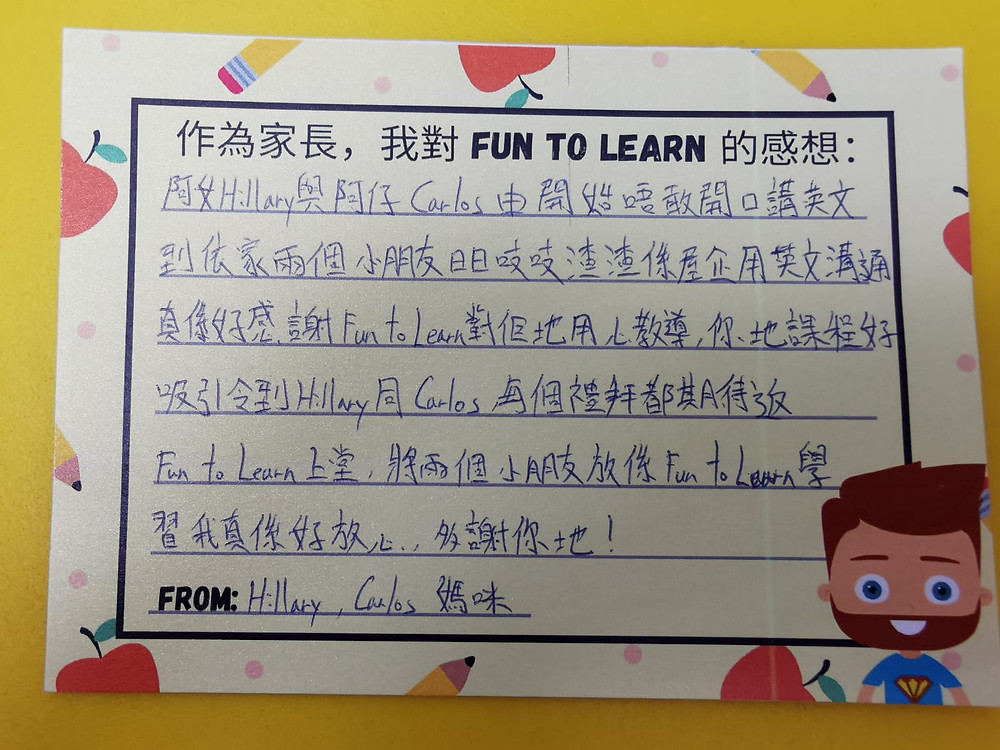 作為家長，我對 FUN TO LEARN 的感想：
阿女Hillary與阿仔 Carlos 由開始唔敢開口講英文
到依家兩個小朋友日日吱吱渣渣係屋企用英文溝通
真係好感謝 Fun to Learn對佢地用心教導，你地課程好
吸引令到Hillary同 Carlos 每個禮拜都期待返
Fun to Learn 上堂，將兩個小朋友放係 Fun to Learn 學
習我真係好放心，多謝你地！
FROM: Hillary, Carlos 媽咪